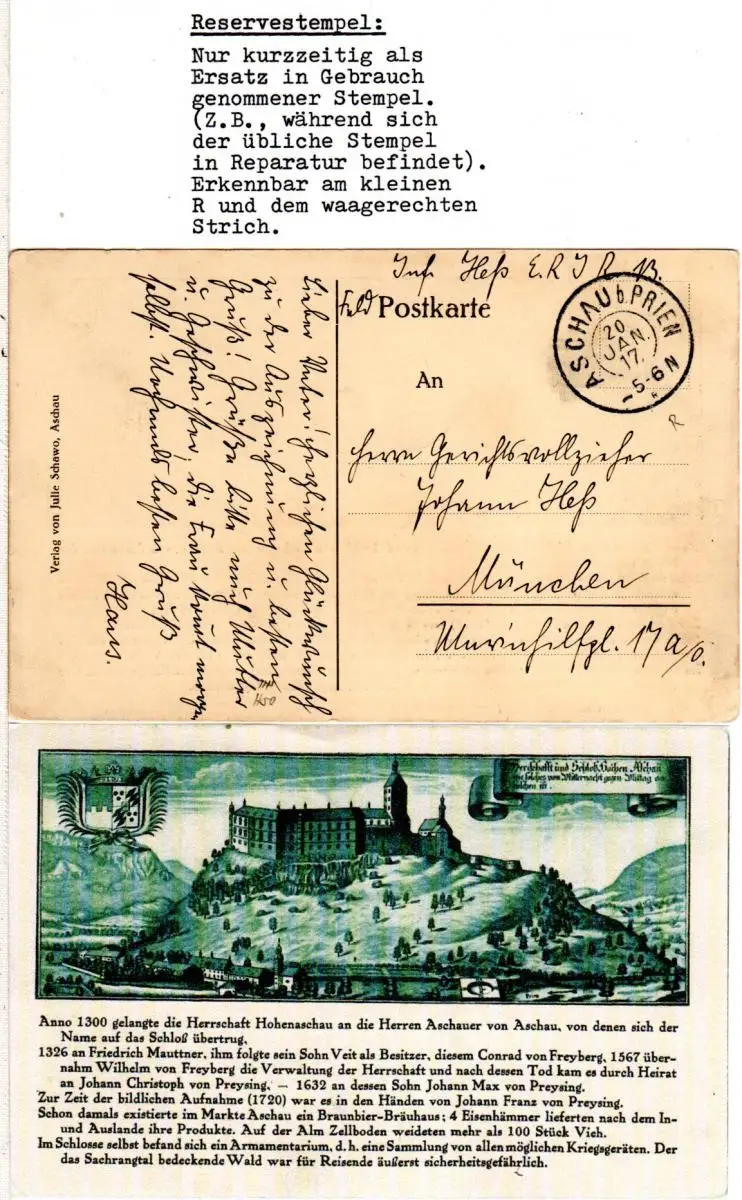 Reservestempel:
Nur kurzzeitig als
Ersatz in Gebrauch
genommener Stempel.
(Z.B., während sich
der übliche Stempel
in Reparatur befindet).
Erkennbar am kleinen
R und dem waagerechten
Strich.
Inf. Heß E. R. I R. 13.
Feld Postkarte
ASCHAU b. PRIEN
20
JAN.
17.
5-6 N
R
An
Herrn Gerichtsvollzieher
Johann Heß
München
17 a/0.
Lieber Vater! Herzlichen Glückwunsch
zu der Auszeichnung u. besten
Gruß! Grüße bitte auch Mutter
u. Geschwister, die Frau
selbst. Nochmals besten Gruß
Hans.
Verlag von Julie Schawo, Aschau
Herrschafft und Schloß Hochen Aschau
wie solches von Mitternacht gegen Mittag an
zusehen ist.
Anno 1300 gelangte die Herrschaft Hohenaschau an die Herren Aschauer von Aschau, von denen sich der
Name auf das Schloß übertrug.
1326 an Friedrich Mauttner, ihm folgte sein Sohn Veit als Besitzer, diesem Conrad von Freyberg, 1567 über-
nahm Wilhelm von Freyberg die Verwaltung der Herrschaft und nach dessen Tod kam es durch Heirat
an Johann Christoph von Preysing, — 1632 an dessen Sohn Johann Max von Preysing.
Zur Zeit der bildlichen Aufnahme (1720) war es in den Händen von Johann Franz von Preysing.
Schon damals existierte im Markte Aschau ein Braunbier-Bräuhaus; 4 Eisenhämmer lieferten nach dem In-
und Auslande ihre Produkte. Auf der Alm Zellboden weideten mehr als 100 Stück Vieh.
Im Schlosse selbst befand sich ein Armamentarium, d. h. eine Sammlung von allen möglichen Kriegsgeräten. Der
das Sachrangtal bedeckende Wald war für Reisende äußerst sicherheitsgefährlich.